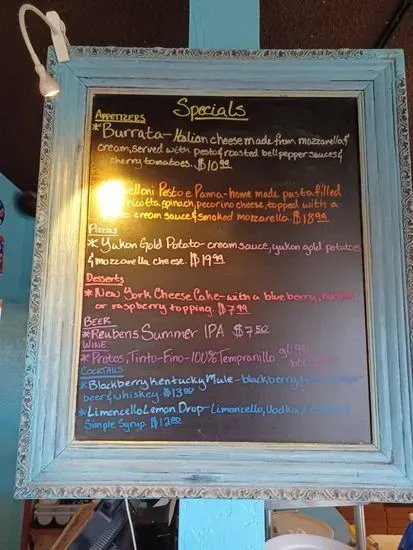 Specials
APPETIZERS
*Burrata-Italian cheese made from mozzarella &
cream, served with pesto & roasted bell pepper sauces &
cherry tomatoes. $10.99
elloni Pesto e Panna-home made pasta filled
ricotta, spinach, pecorino cheese, topped with a
cream sauce & smoked mozzarella. $18.99
Pizzas
*Yukon Gold Potato-cream sauce, yukon gold potatoes
& mozzarella cheese. $19.99
Desserts
*New York Cheese Cake-with a blueberry,
or raspberry topping. $7.99
BEER
*Reubens Summer IPA $7.50
WINE
*Protos, Tinto-Fino-100% Tempranillo
COCKTAILS
*Blackberry Kentucky Mule-blackberry
beer & whiskey. $13.00
*Limoncello Lemon Drop-Limoncello, Vodka,
Simple Syrup. $12.00